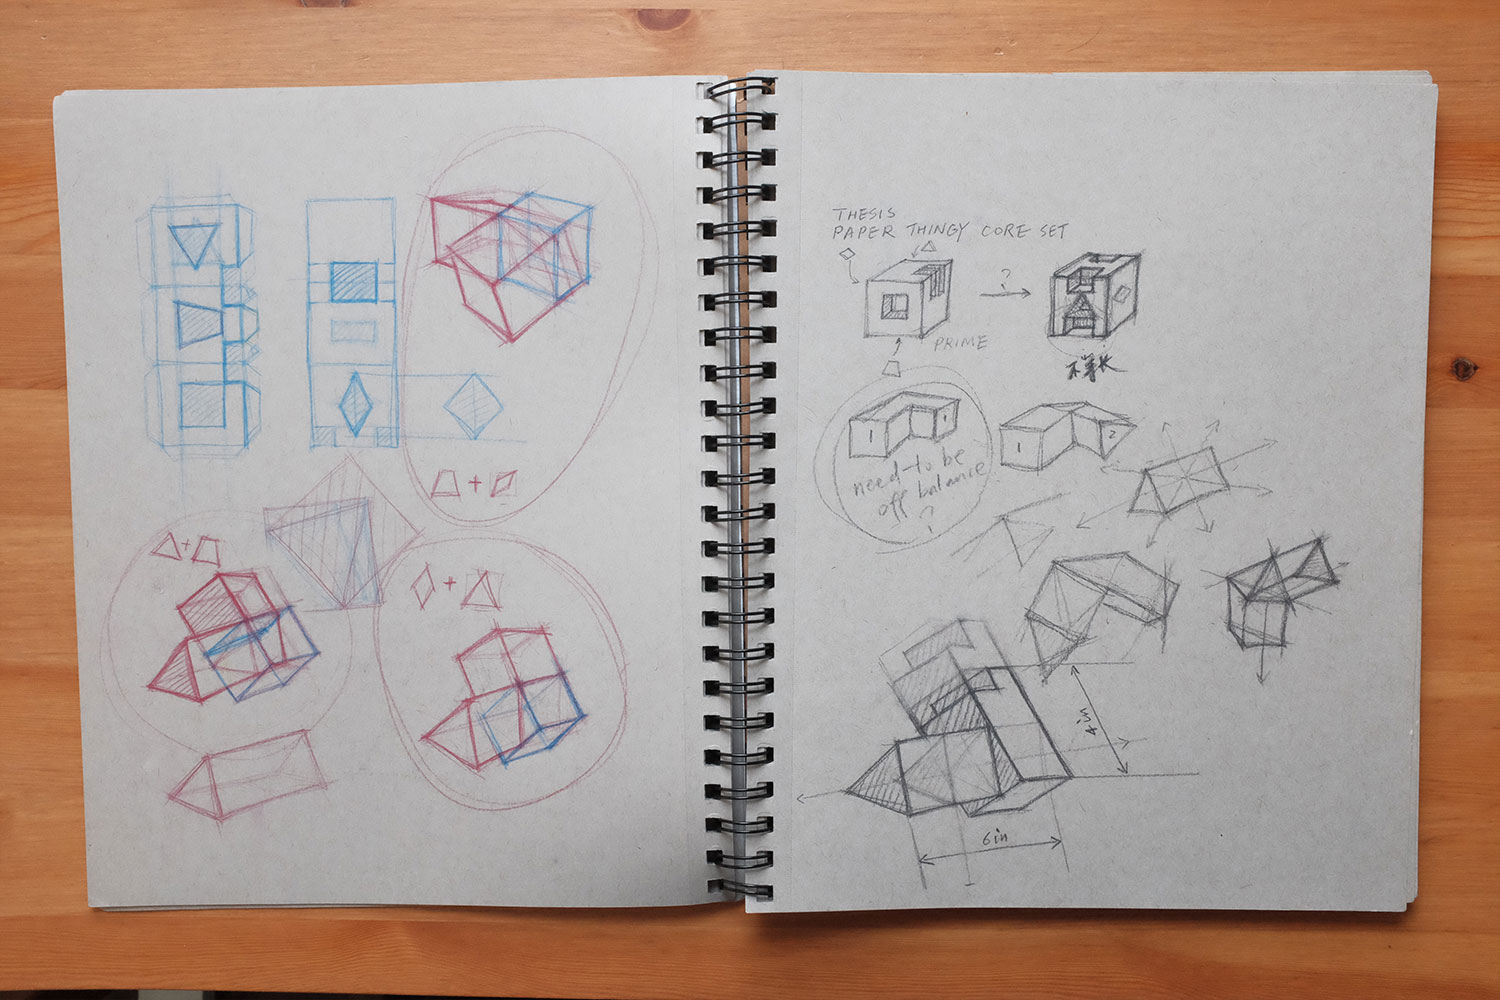 THESIS
PAPER THINGY CORE SET
?
PRIME
1
1
1
2
need to be
off balance
?
4in
6in